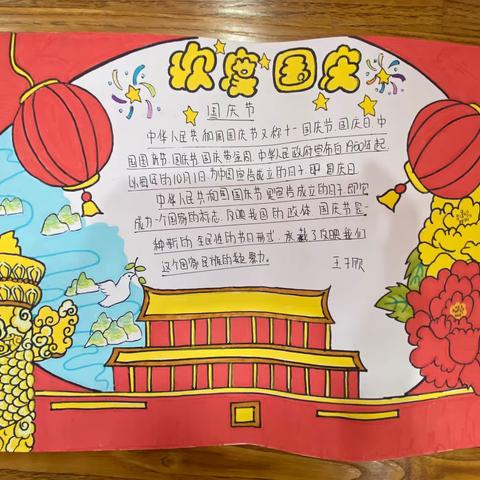 欢度国庆
国庆节
中华人民共和国国庆节又称十一国庆节、国庆日、中
国国庆节、国庆节。中华人民政府宣布自1950年起,
以每年的10月1日为中国宣告成立的日子,即国庆日。
中华人民共和国国庆节是宣告成立的日子,即它
成为一个国家的标志,反映我国的政体 国庆节是一
种新的、全民性的节日形式,承载了反映我们
这个国家、民族的凝聚力。
王欣